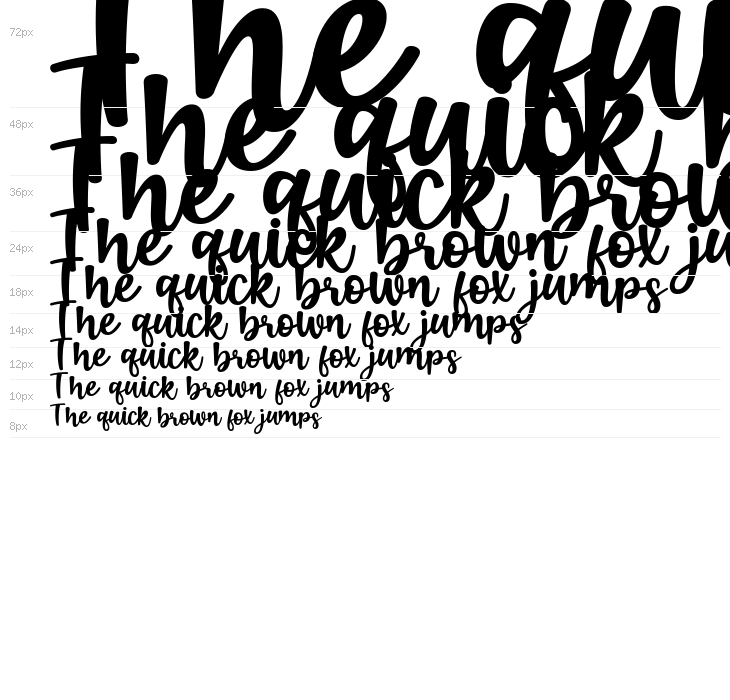 72px The qu
48px The quick
36px The quick brow
24px The quick brown fox ju
18px The quick brown fox jumps
14px The quick brown fox jumps
12px The quick brown fox jumps
10px The quick brown fox jumps
8px The quick brown fox jumps